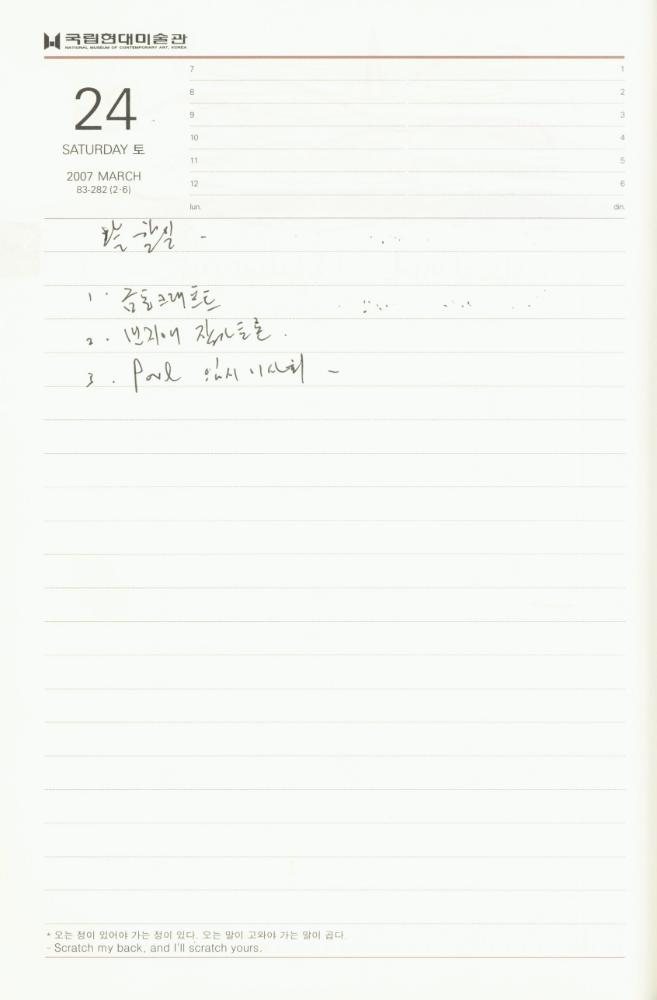 국립현대미술관
NATIONAL MUSEUM OF CONTEMPORARY ART, KOREA
24
SATURDAY 토
2007 MARCH
83-282 (2-6)
7 1
8 2
9 3
10 4
11 5
12 6
lun. din.
할일 -
1. 금호크래프트
2.
3. 임시 이사회 -
* 오는 정이 있어야 가는 정이 있다. 오는 말이 고와야 가는 말이 곱다.
- Scratch my back, and I'll scratch yours.